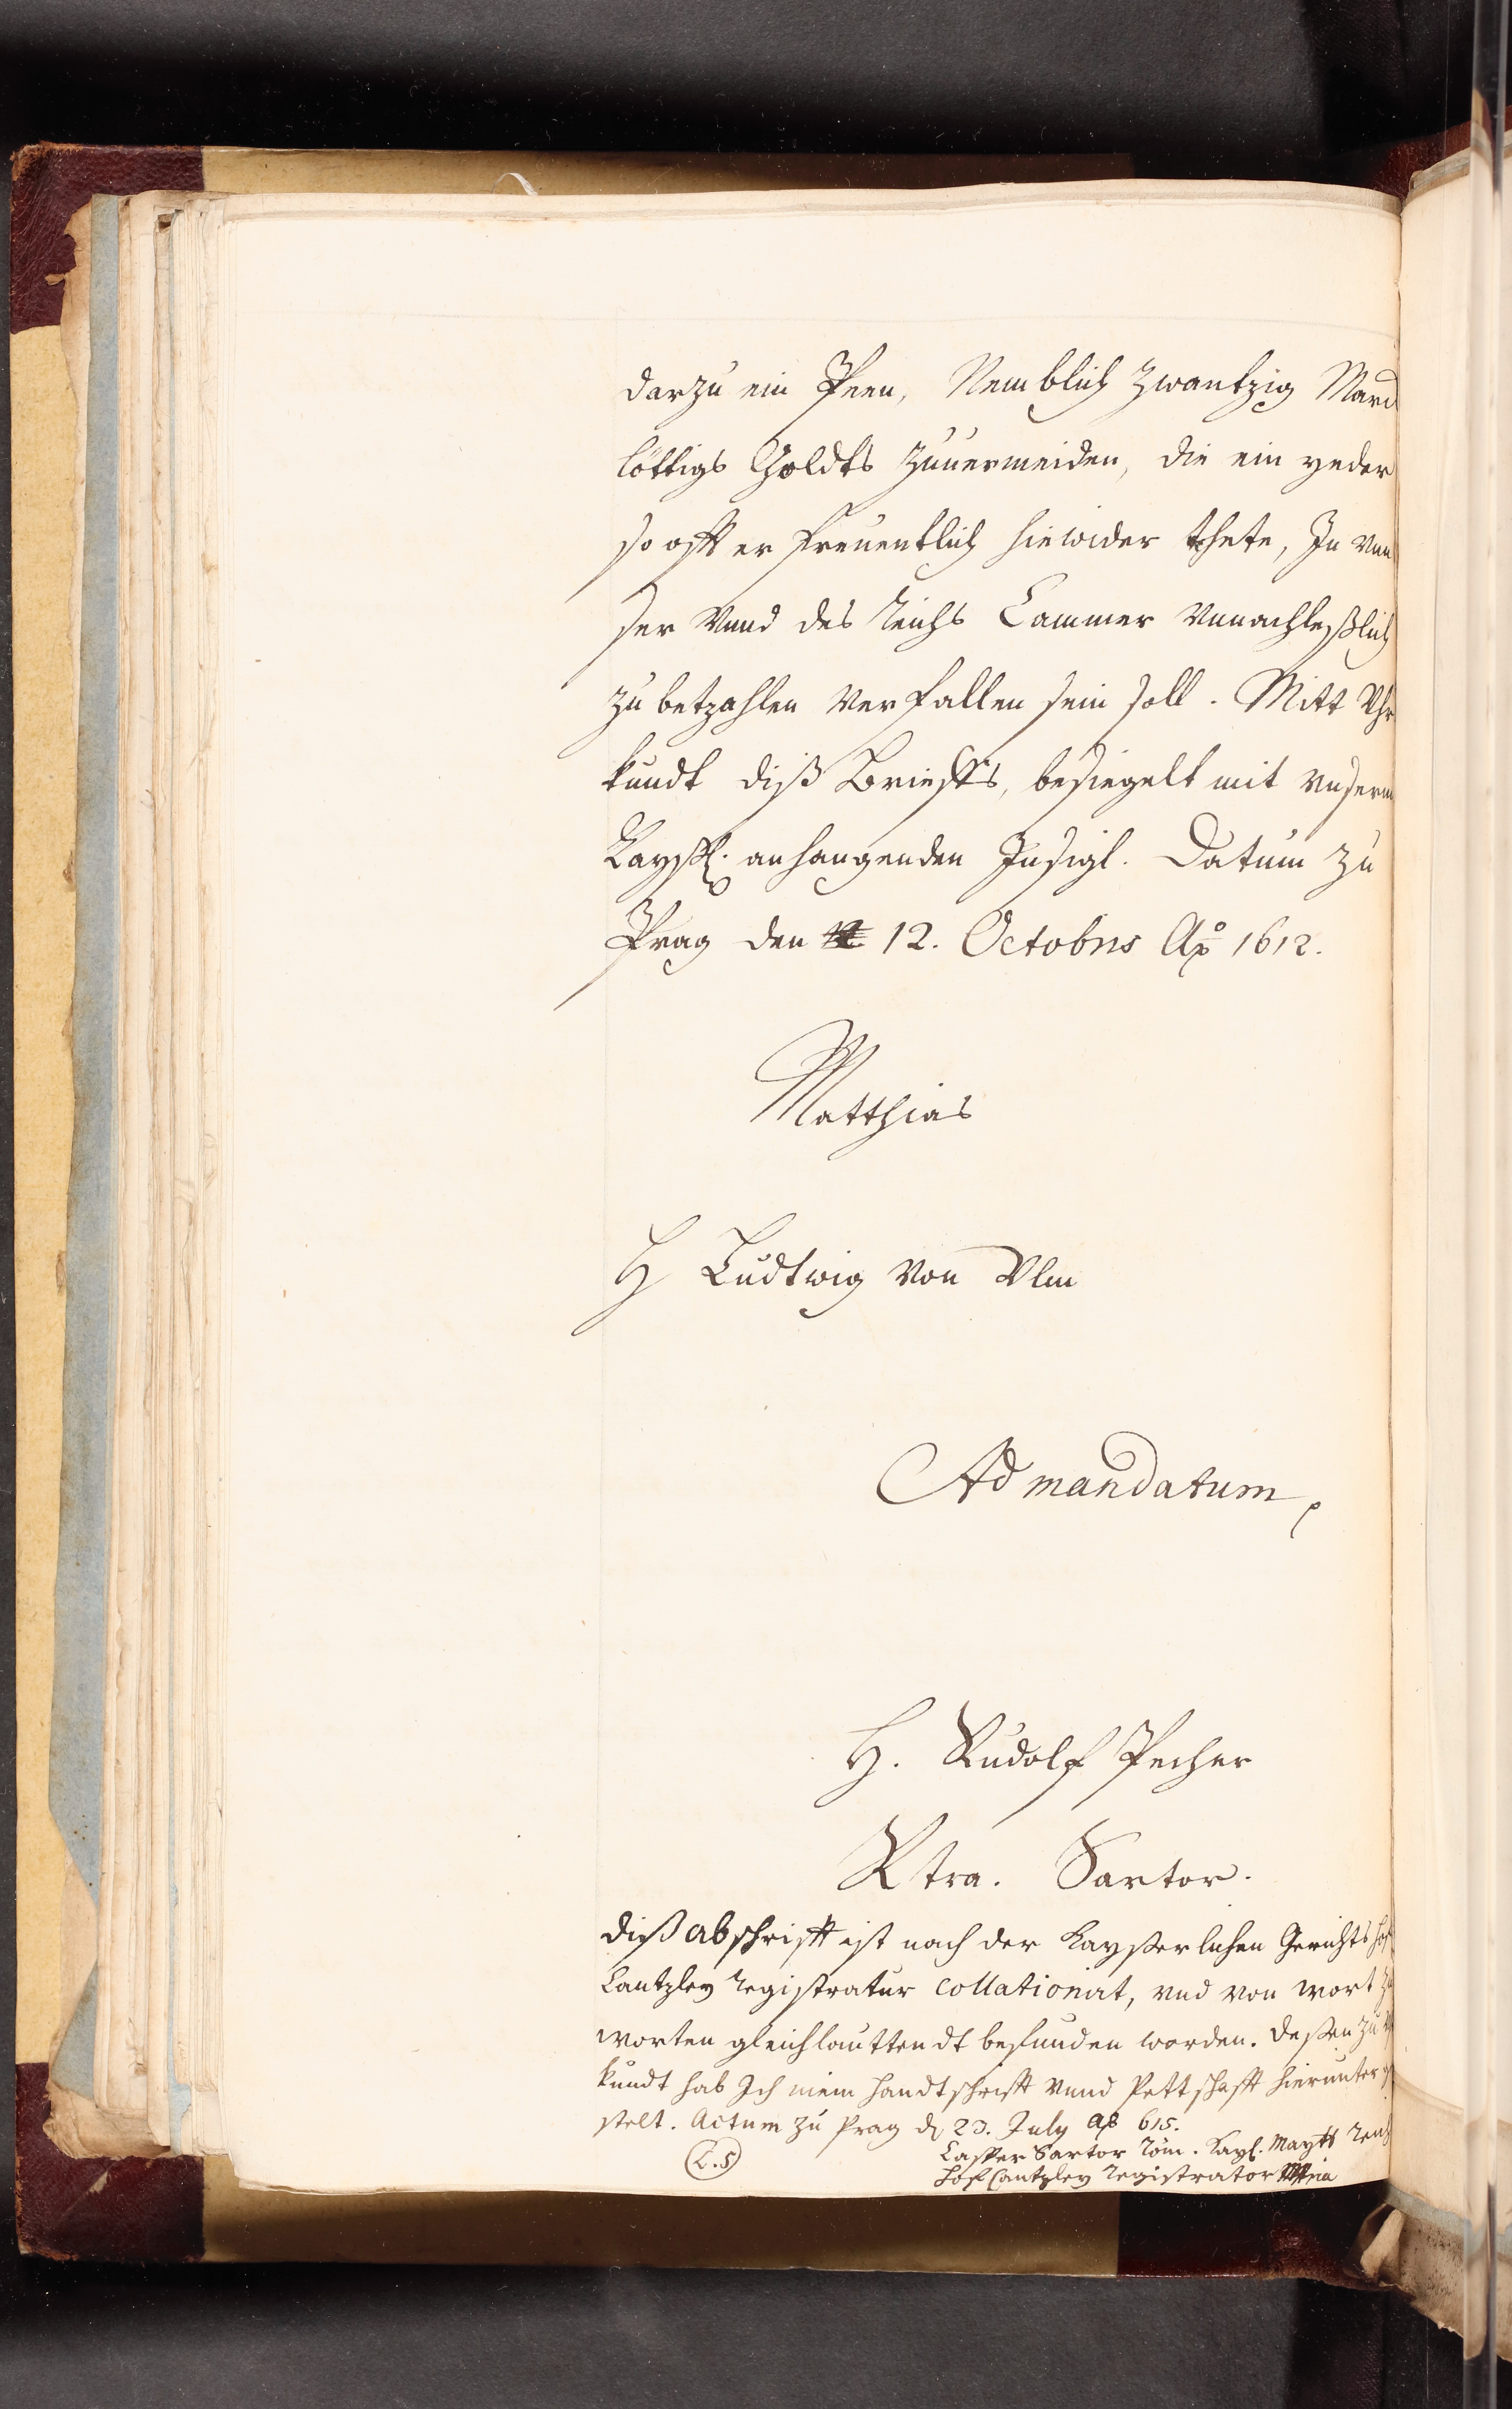 darzu ein Peen, Nemblich zwantzig Marck
löttigs Goldts zuuermeiden, die ein yeder
so offt er freuentlich hiewider thete, In vnn
ser Vnnd des Reichs Cammer Vnnachleßlich
zu betzahlen verfallen sein soll. Mitt Vhr
kundt diß Brieffs, besiegelt mit vnserm
Kaysl. anhangenden Insigl. Datum zu
Prag den 12. Octobris Ao 1612.
Matthias
H Ludtwig von Vlm
Ad mandatum
H. Rudolf Pecher
Rtra. Sartor.
diß abschrifft ist nach der Kayßerlichen Gerichts hof
Cantzley registratur collationirt, vnd von wort zu
worten gleichlauttendt befunden worden. deßen zu
kundt hab Ich mein handtschrifft vnnd Pettschafft hierunter ge
stelt. Actum zu Prag d 23. July Ao 615.
(L.S)
Casper Sartor Röm. Kayl. Maytt Reichs
Hof Cantzley registrator Mpria